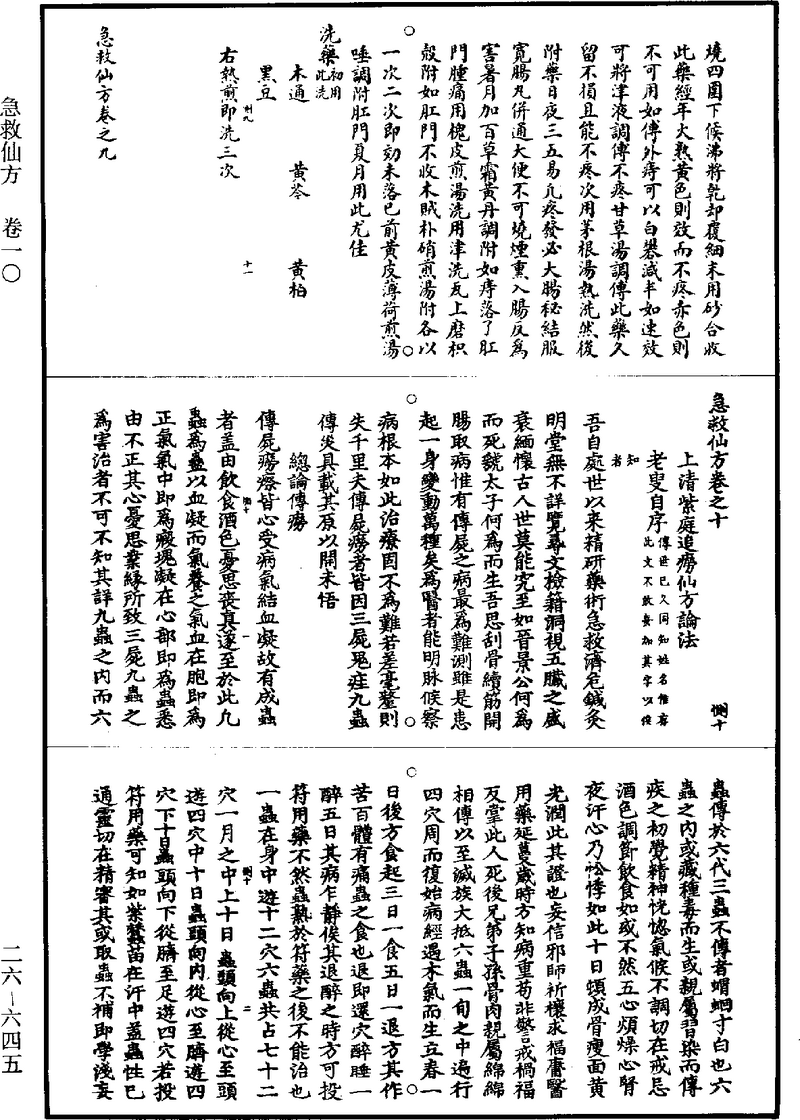 急救仙方　卷一〇
燒四圍下候沸將乾却覆細末用砂合收
此藥經年火熟黃色則效而不疼赤色則
不可用如傅外痔可以白礬減半如速效
可將津液調傅不疼甘草湯調傅此藥久
留不損且能不疼次用茅根湯熱洗然後
附藥日夜三五易凢疼發必大腸秘結服
寬腸丸併通大便不可燒煙熏入腸反為
害暑月加百草霜黃丹調附如痔落了肛
門腫痛用槐皮煎湯洗用津洗瓦上磨枳
殼附如肛門不收木賊朴硝煎湯附各以
一次二次即効未落已前黃皮薄荷煎湯
唾調附肛門夏月用此尤佳
洗藥初用此洗
木通　黃芩　黃柏
黑豆
右熱煎即洗三次
急救仙方卷之九
十一
急救仙方卷之十
惻十
上清紫庭追癆仙方論法
老叟自序傳世已久同知姓名惟存此文不敢妄加其字以俟知者
吾自處世以來精研藥術急救濟危鍼灸
明堂無不詳覽尋文檢籍洞視五臟之盛
衰緬懷古人世莫能究至如晉景公何為
而死虢太子何為而生吾思刮骨續筋開
腸取病惟有傳屍之病最為難測雖是患
起一身變動萬種矣為醫者能明脉候察
病根本如此治療固不為難若差毫釐則
失千里夫傳屍癆者皆因三屍鬼疰九蟲
傳災具載其原以開未悟
總論傳癆
傳屍癆瘵皆心受病氣結血凝故有成蟲
者盖由飲食酒色憂思喪真遂至於此凢
蟲為蠱以血凝而氣養之氣血在胞即為
正氣氣中即為瘕塊凝在心部即為蟲悉
由不正其心憂思業緣所致三屍九蟲之
為害治者不可不知其詳九蟲之内而六
一
蟲傳於六代三蟲不傳者蝟蛔寸白也六
蟲之内或藏種毒而生或親屬習染而傳
疾之初覺精神恍惚氣候不調切在戒忌
酒色調節飲食如或不然五心煩燥心腎
夜汗心乃忪悸如此十日頓成骨瘦面黃
光潤此其證也妄信邪師祈禳求福庸醫
用藥延蔓歲時方知病重苟非警戒禍福
反掌此人死後兄弟子孫骨肉親屬綿綿
相傳以至滅族大抵六蟲一旬之中遍行
四穴周而復始病經遇木氣而生立春一
日後方食起三日一食五日一退方其作
苦百體有痛蟲之食也退即還穴醉睡一
醉五日其病乍靜俟其退醉之時方可投
符用藥不然蟲熟於符藥之後不能治也
一蟲在身中遊十二穴六蟲共占七十二
穴一月之中上十日蟲頭向上從心至頭
遊四穴中十日蟲頭向内從心至臍遊四
穴下十日蟲頭向下從臍至足遊四穴若投
符用藥可知如紫蠶苗在汗中盖蟲性已
通靈切在精審其或取蟲不補即學淺妄
惻十
二
二六—六四五